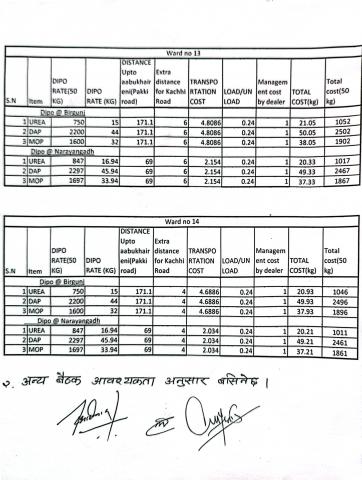 Ward no 13
S.N Item DIPO RATE(50 KG) DIPO RATE (KG) DISTANCE Upto aabukhaireni(Pakki road) Extra distance for Kachhi Road TRANSPORTATION COST LOAD/UNLOAD Management cost by dealer TOTAL COST(kg) Total cost(50 kg)
Dipo @ Birgunj
1 UREA 750 15 171.1 6 4.8086 0.24 1 21.05 1052
2 DAP 2200 44 171.1 6 4.8086 0.24 1 50.05 2502
3 MOP 1600 32 171.1 6 4.8086 0.24 1 38.05 1902
Dipo @ Narayangadh
1 UREA 847 16.94 69 6 2.154 0.24 1 20.33 1017
2 DAP 2297 45.94 69 6 2.154 0.24 1 49.33 2467
3 MOP 1697 33.94 69 6 2.154 0.24 1 37.33 1867
Ward no 14
S.N Item DIPO RATE(50 KG) DIPO RATE (KG) DISTANCE Upto aabukhaireni(Pakki road) Extra distance for Kachhi Road TRANSPORTATION COST LOAD/UNLOAD Management cost by dealer TOTAL COST(kg) Total cost(50 kg)
Dipo @ Birgunj
1 UREA 750 15 171.1 4 4.6886 0.24 1 20.93 1046
2 DAP 2200 44 171.1 4 4.6886 0.24 1 49.93 2496
3 MOP 1600 32 171.1 4 4.6886 0.24 1 37.93 1896
Dipo @ Narayangadh
1 UREA 847 16.94 69 4 2.034 0.24 1 20.21 1011
2 DAP 2297 45.94 69 4 2.034 0.24 1 49.21 2461
3 MOP 1697 33.94 69 4 2.034 0.24 1 37.21 1861
२. अन्य बैठक आवश्यकता अनुसार बसिनेछ ।